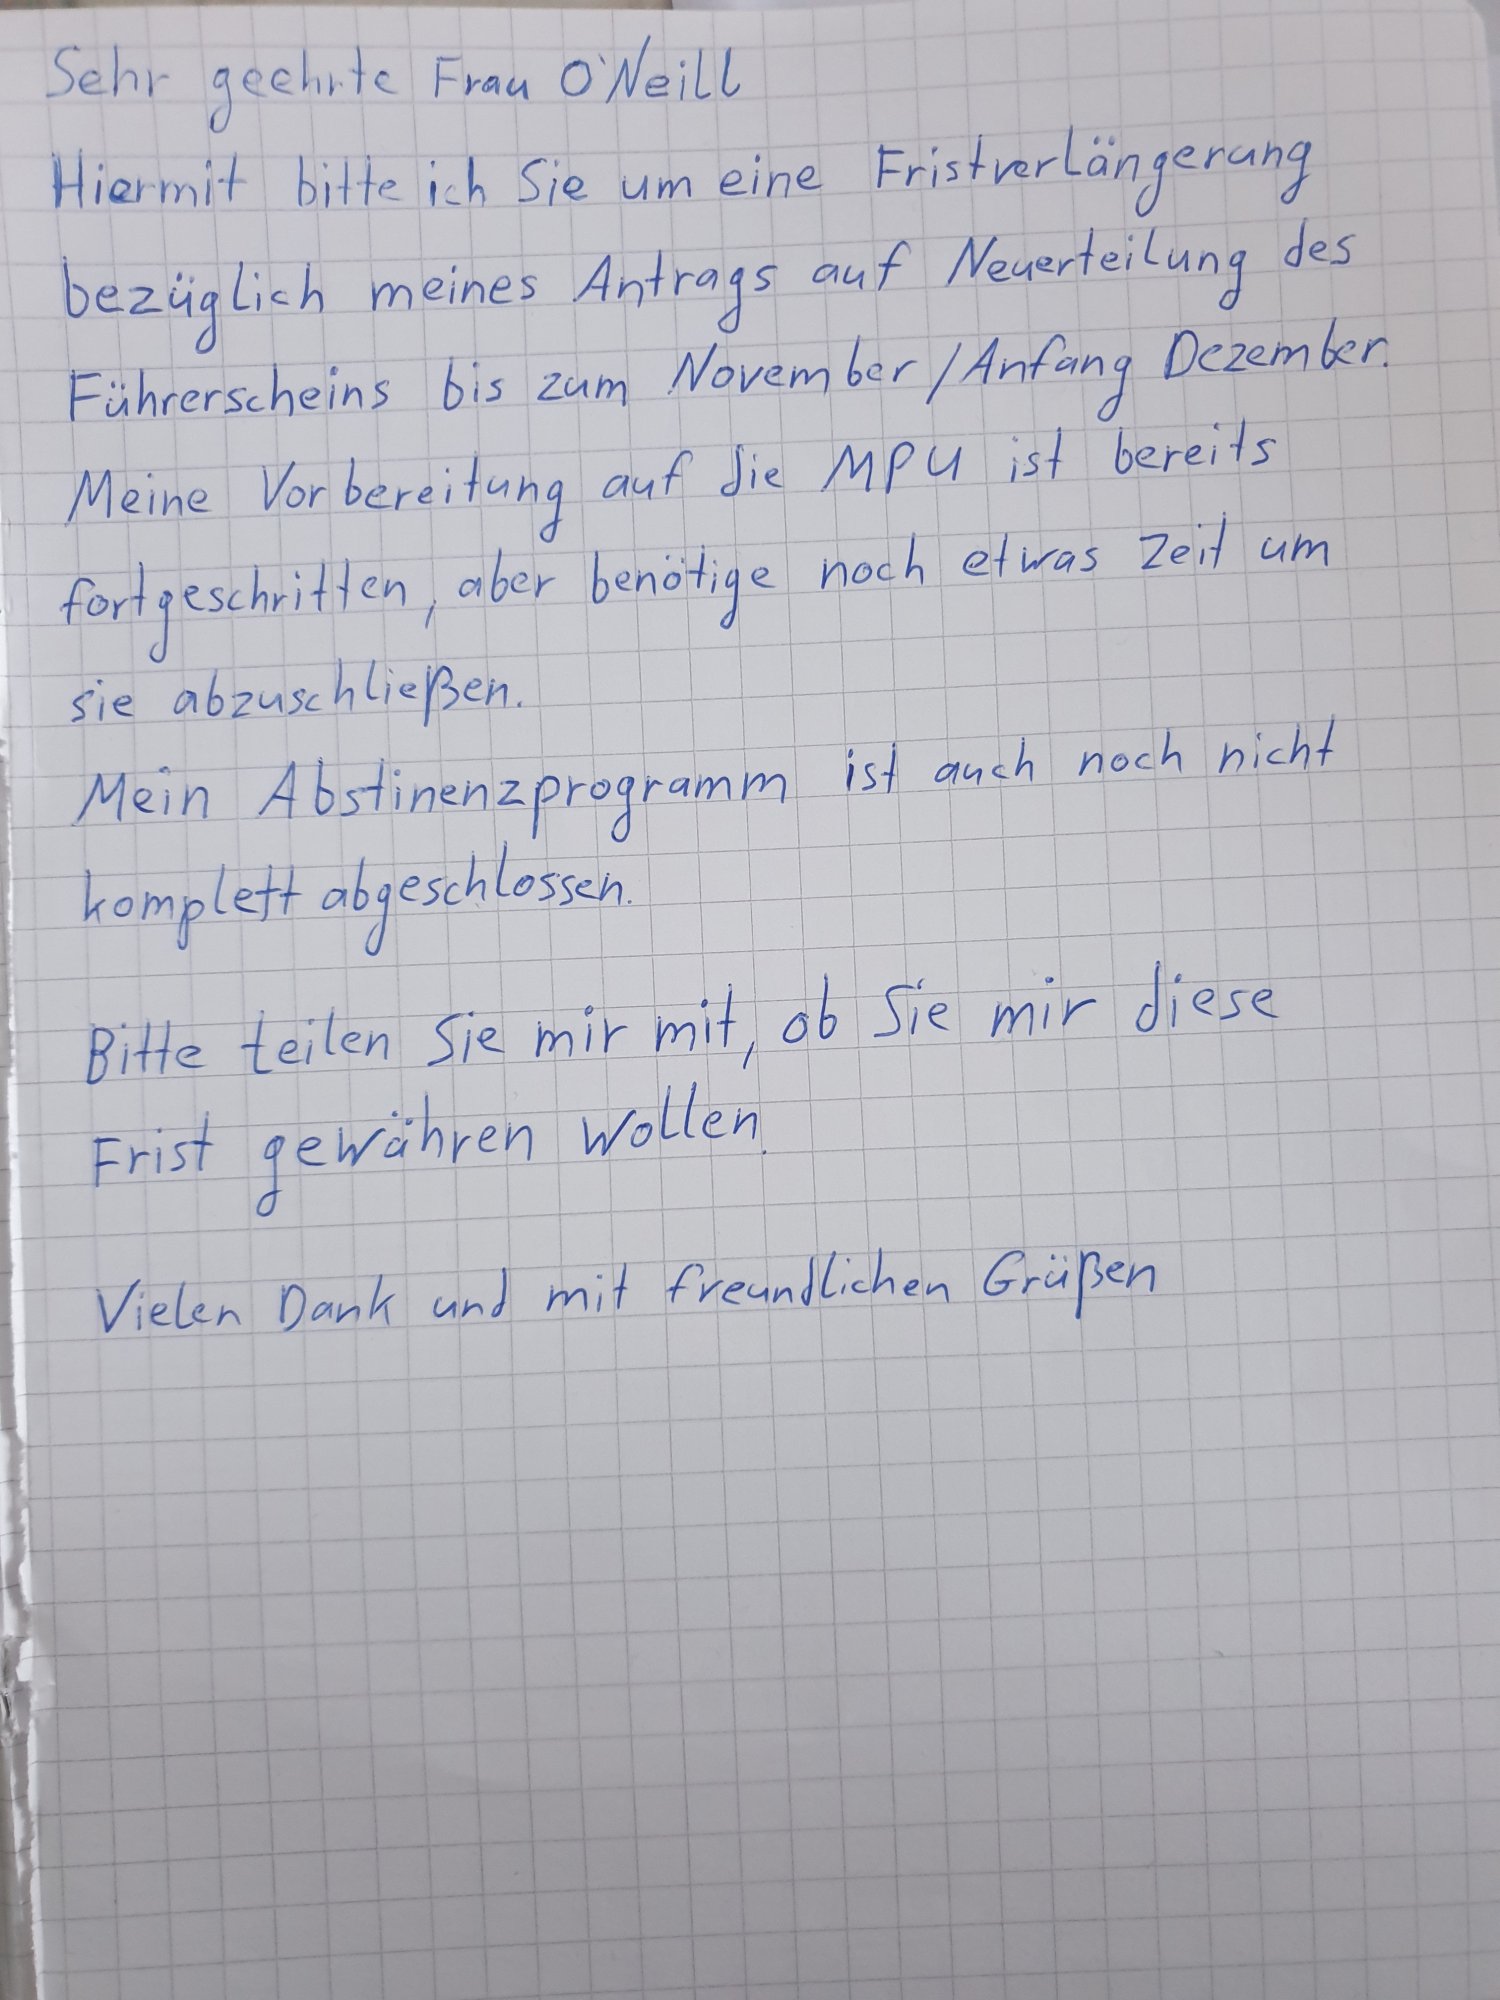 Sehr geehrte Frau O'Neill
Hiermit bitte ich Sie um eine Fristverlängerung
bezüglich meines Antrags auf Neuerteilung des
Führerscheins bis zum November/Anfang Dezember.
Meine Vorbereitung auf die MPU ist bereits
fortgeschritten, aber benötige noch etwas Zeit um
sie abzuschließen.
Mein Abstinenzprogramm ist auch noch nicht
komplett abgeschlossen.
Bitte teilen Sie mir mit, ob Sie mir diese
Frist gewähren wollen.
Vielen Dank und mit freundlichen Grüßen